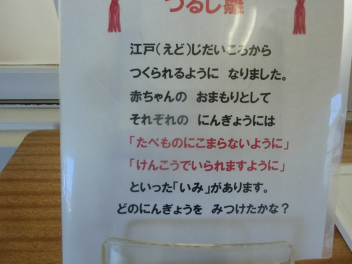 つるし雛
江戸(えど)じだいころから
つくられるように なりました。
赤ちゃんの おまもりとして
それぞれの にんぎょうには
「たべものにこまらないように」
「けんこうでいられますように」
といった「いみ」があります。
どのにんぎょうを みつけたかな？